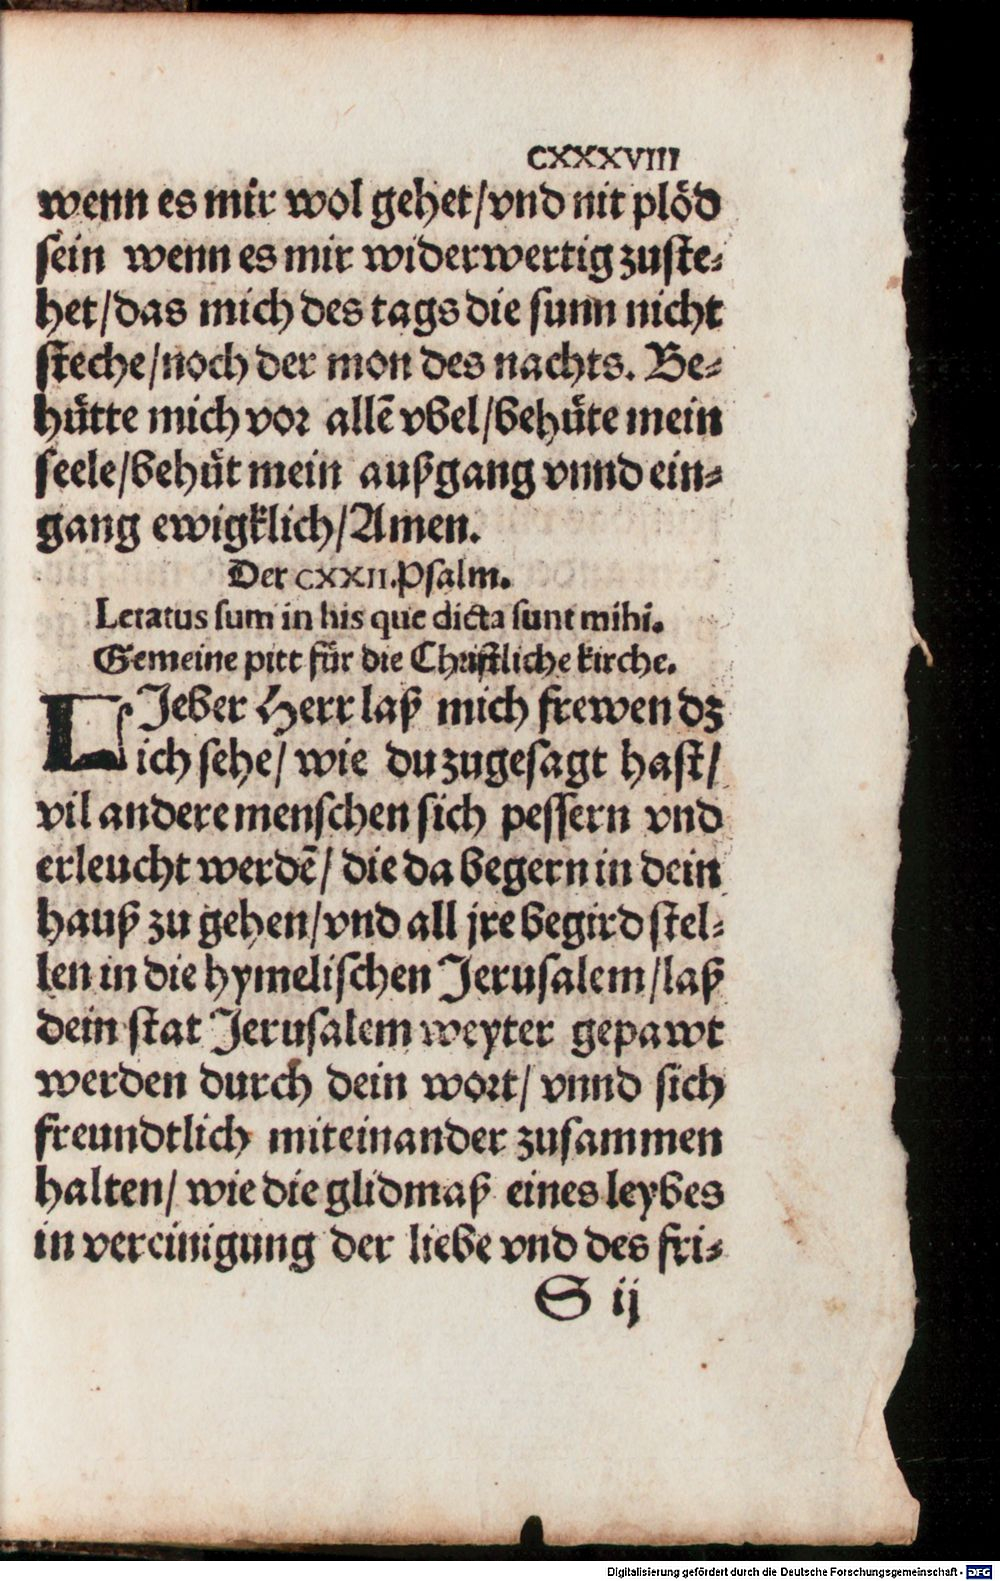 CXXXVIII
wenn es mir wol gehet/vnd nit plöd
sein wenn es mir widerwertig zuste⸗
het/das mich des tags die sunn nicht
steche/noch der mon des nachts. Be⸗
hütte mich vor allē vbel/behüte mein
seele/behüt mein außgang vnnd ein⸗
gang ewigklich/Amen.
Der CXXII. Psalm.
Letatus sum in his que dicta sunt mihi.
Gemeine pitt für die Christliche kirche.
LJeber Herr laß mich frewen dz
ich sehe/ wie du zugesagt hast/
vil andere menschen sich pessern vnd
erleucht werdē/ die da begern in dein
hauß zu gehen/vnd all jre begird stel⸗
len in die hymelischen Jerusalem/laß
dein stat Jerusalem weyter gepawt
werden durch dein wort/ vnnd sich
freundtlich miteinander zusammen
halten/ wie die glidmaß eines leybes
in vereinigung der liebe vnd des fri⸗
S ij
Digitalisierung gefördert durch die Deutsche Forschungsgemeinschaft - DFG